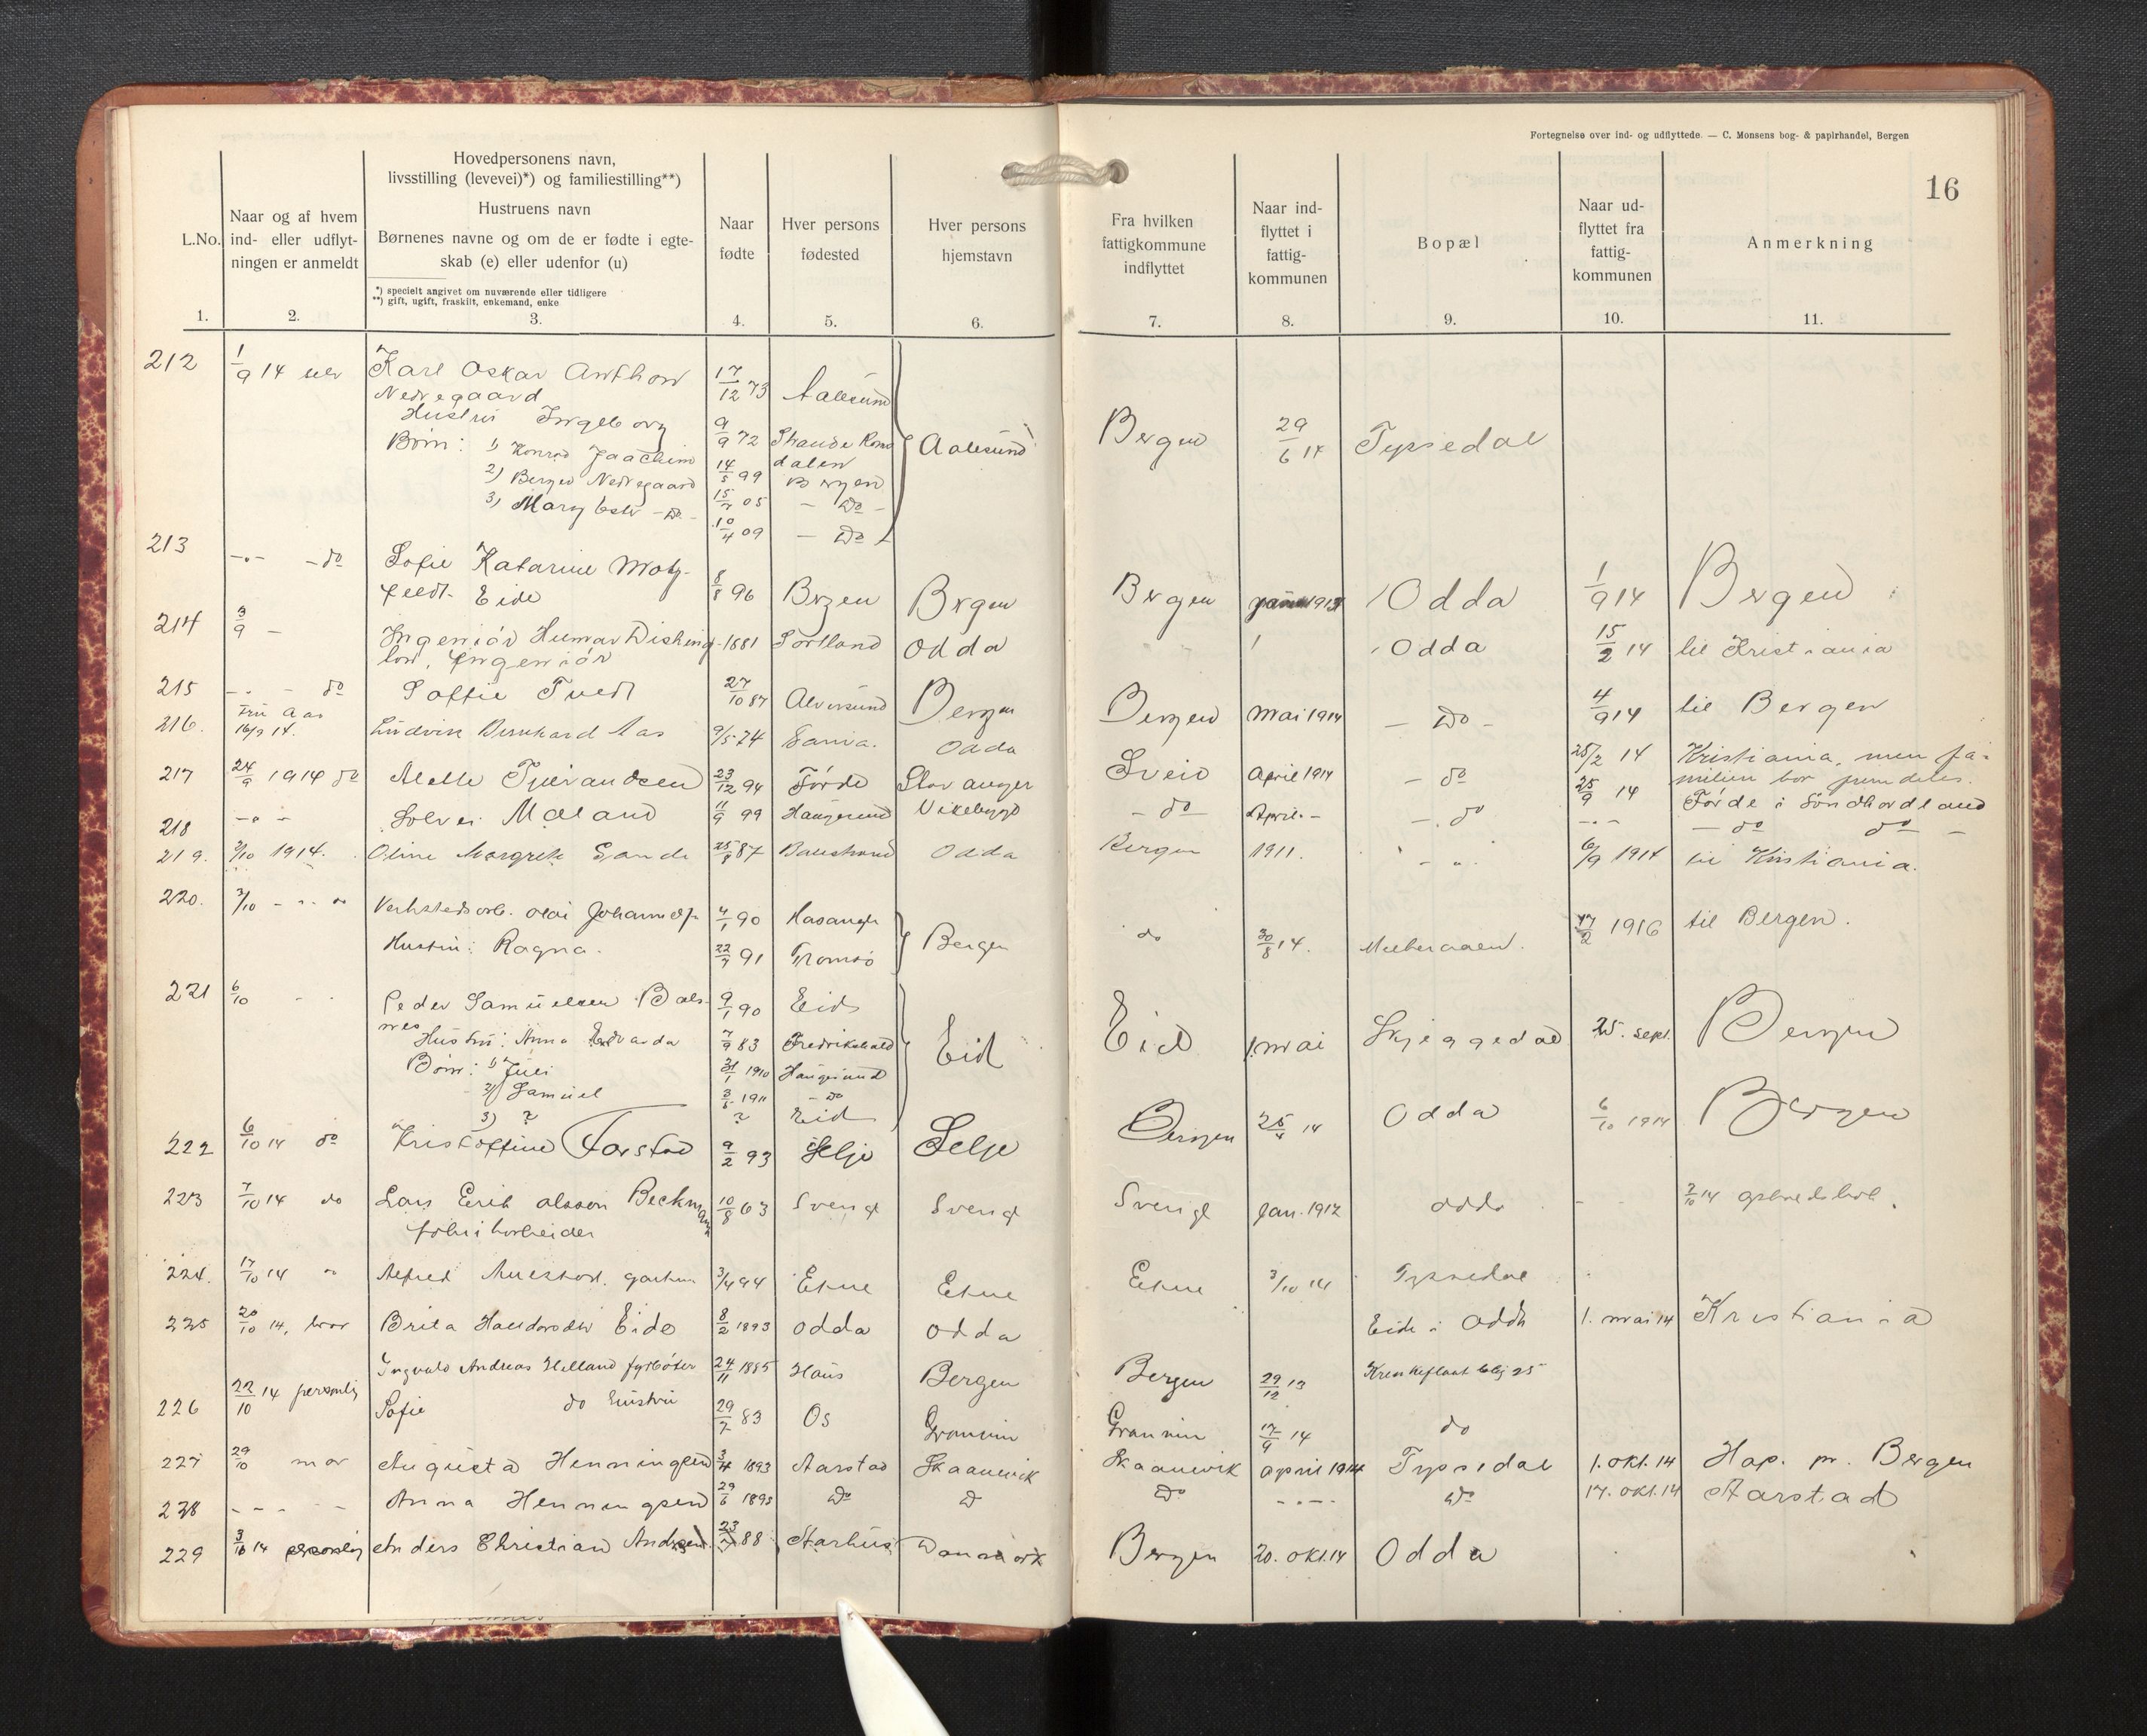 Fortegnelse over ind- og udflyttede. — C. Monsens bog- & papirhandel, Bergen
16
L.No.
Naar og af hvem ind- eller udflyt-ningen er anmeldt
Hovedpersonens navn,
livsstilling (levevei)*) og familiestilling**)
Hustruens navn
Børnenes navne og om de er fødte i egte-
skab (e) eller udenfor (u)
*) specielt angivet om nuværende eller tidligere
**) gift, ugift, fraskilt, enkemand, enke
Naar fødte
Hver persons fødested
Hver persons hjemstavn
Fra hvilken fattigkommune indflyttet
Naar ind-flyttet i fattig-kommunen
Bopæl
Naar ud-flyttet fra fattig-kommunen
Anmerkning
1. 2. 3. 4. 5. 6. 7. 8. 9. 10. 11.
212 1/9 14 Karl Oskar Anthon 17/12 73 Aalesund
Nedregaard
Hustru Ingeborg 9/9 72 Aalesund Bergen 29/6 14 Tyssedal
Børn: 1) Konrad Joachim 14/5 99 dalen
2) Berger Nedregaard 15/7 05 Bergen
3) Mary Ester - Do - 10/4 09 - Do -
- Do
213 - " - - do Sofie Katarine Motz-
feldt Eide 8/8 96 Bergen Bergen Bergen 1913 Odda 1/9 14 Bergen
214 3/9 - Ingeniør Humar Disking- 1881 Sortland Odda Odda 15/2 14 til Kristiania
ton, Ingeniør
215 - - do Soffie Tvedt 27/10 87 Alversund Bergen Bergen Mai 1914 - Do - 4/9 14 til Bergen
Fru Aas
216. 16/9 14. Ludvik Bernhard Aas 9/5 74 Odda 25/2 14 Kristiania, men fa-
milien bor fremdeles.
217 24/9 1914 do 23/12 94 Førde Stavanger Sveio April 1914 - do 25/9 14 Førde i Søndhordland
218 - " - Solvei Mæland 11/9 99 Haugesund Vikebygd - do - April - - " do - " - - do do -
219. 2/10 1914. Oline Margrete Sande 25/8 87 Balestrand Odda Bergen 1911. - " - 6/9 1914 til Kristiania.
220. 3/10 - " - Verkstedsarb. Olai Johannes 4/1 90 Hosanger
Hustru: Ragna. 22/7 91 Tromsø Bergen do 30/8 14. 17/2 1916 til Bergen.
221 6/10 - Peder Samuelsen Bals- 9/1 90 Eid
nes
Hustru: Anna Edvarda 7/9 83 Fredrikshald Eid Eid 1. mai Skjeggedal 25. sept. Bergen
Børn: 1) Juli 31/1 1910 Haugesund
2) Samuel 3/5 1911 - do
3) ? ? Eid
222 6/10 14 do Kristoffine Farstad 9/2 93 Selje Selje Bergen 25/4 14 Odda 6/10 1914 Bergen
223 7/10 14 do Lars Erik Olsson Beckman 10/8 63 Sverig Sverig Sverige Jan. 1912 Odda - 7/10 14
fabrikarbeider
224. 17/10 14 " Alfred 3/4 94 Etne Etne Etne 3/10 14 Tyssedal
225 20/10 14, bror Brita Haldorsdtr Eide 8/2 1893 Odda Odda Eide i Odda 1. mai 14 Kristiania
Ingvald Andreas Helland fyrbøter 24/11 1885 Haus Bergen Bergen 29/12 13
226 22/10 14 personlig Sofie do hustru 29/7 83 Os Granvin Granvin 17/9 14 do
227 29/10 mor Augusta Henningsen 3/4 1893 Aarstad Skaanevik Skaanevik April 1914 Tyssedal 1. okt. 14 Hop. pr. Bergen
238 - - - - Anna Henningsen 29/6 1895 Do Do Do - " - Do 17. okt. 14 Aarstad
229 3/10 14 personlig Anders Christian Andersen 23/7 88 Aarhus Danmark Bergen 20. okt. 14 Odda